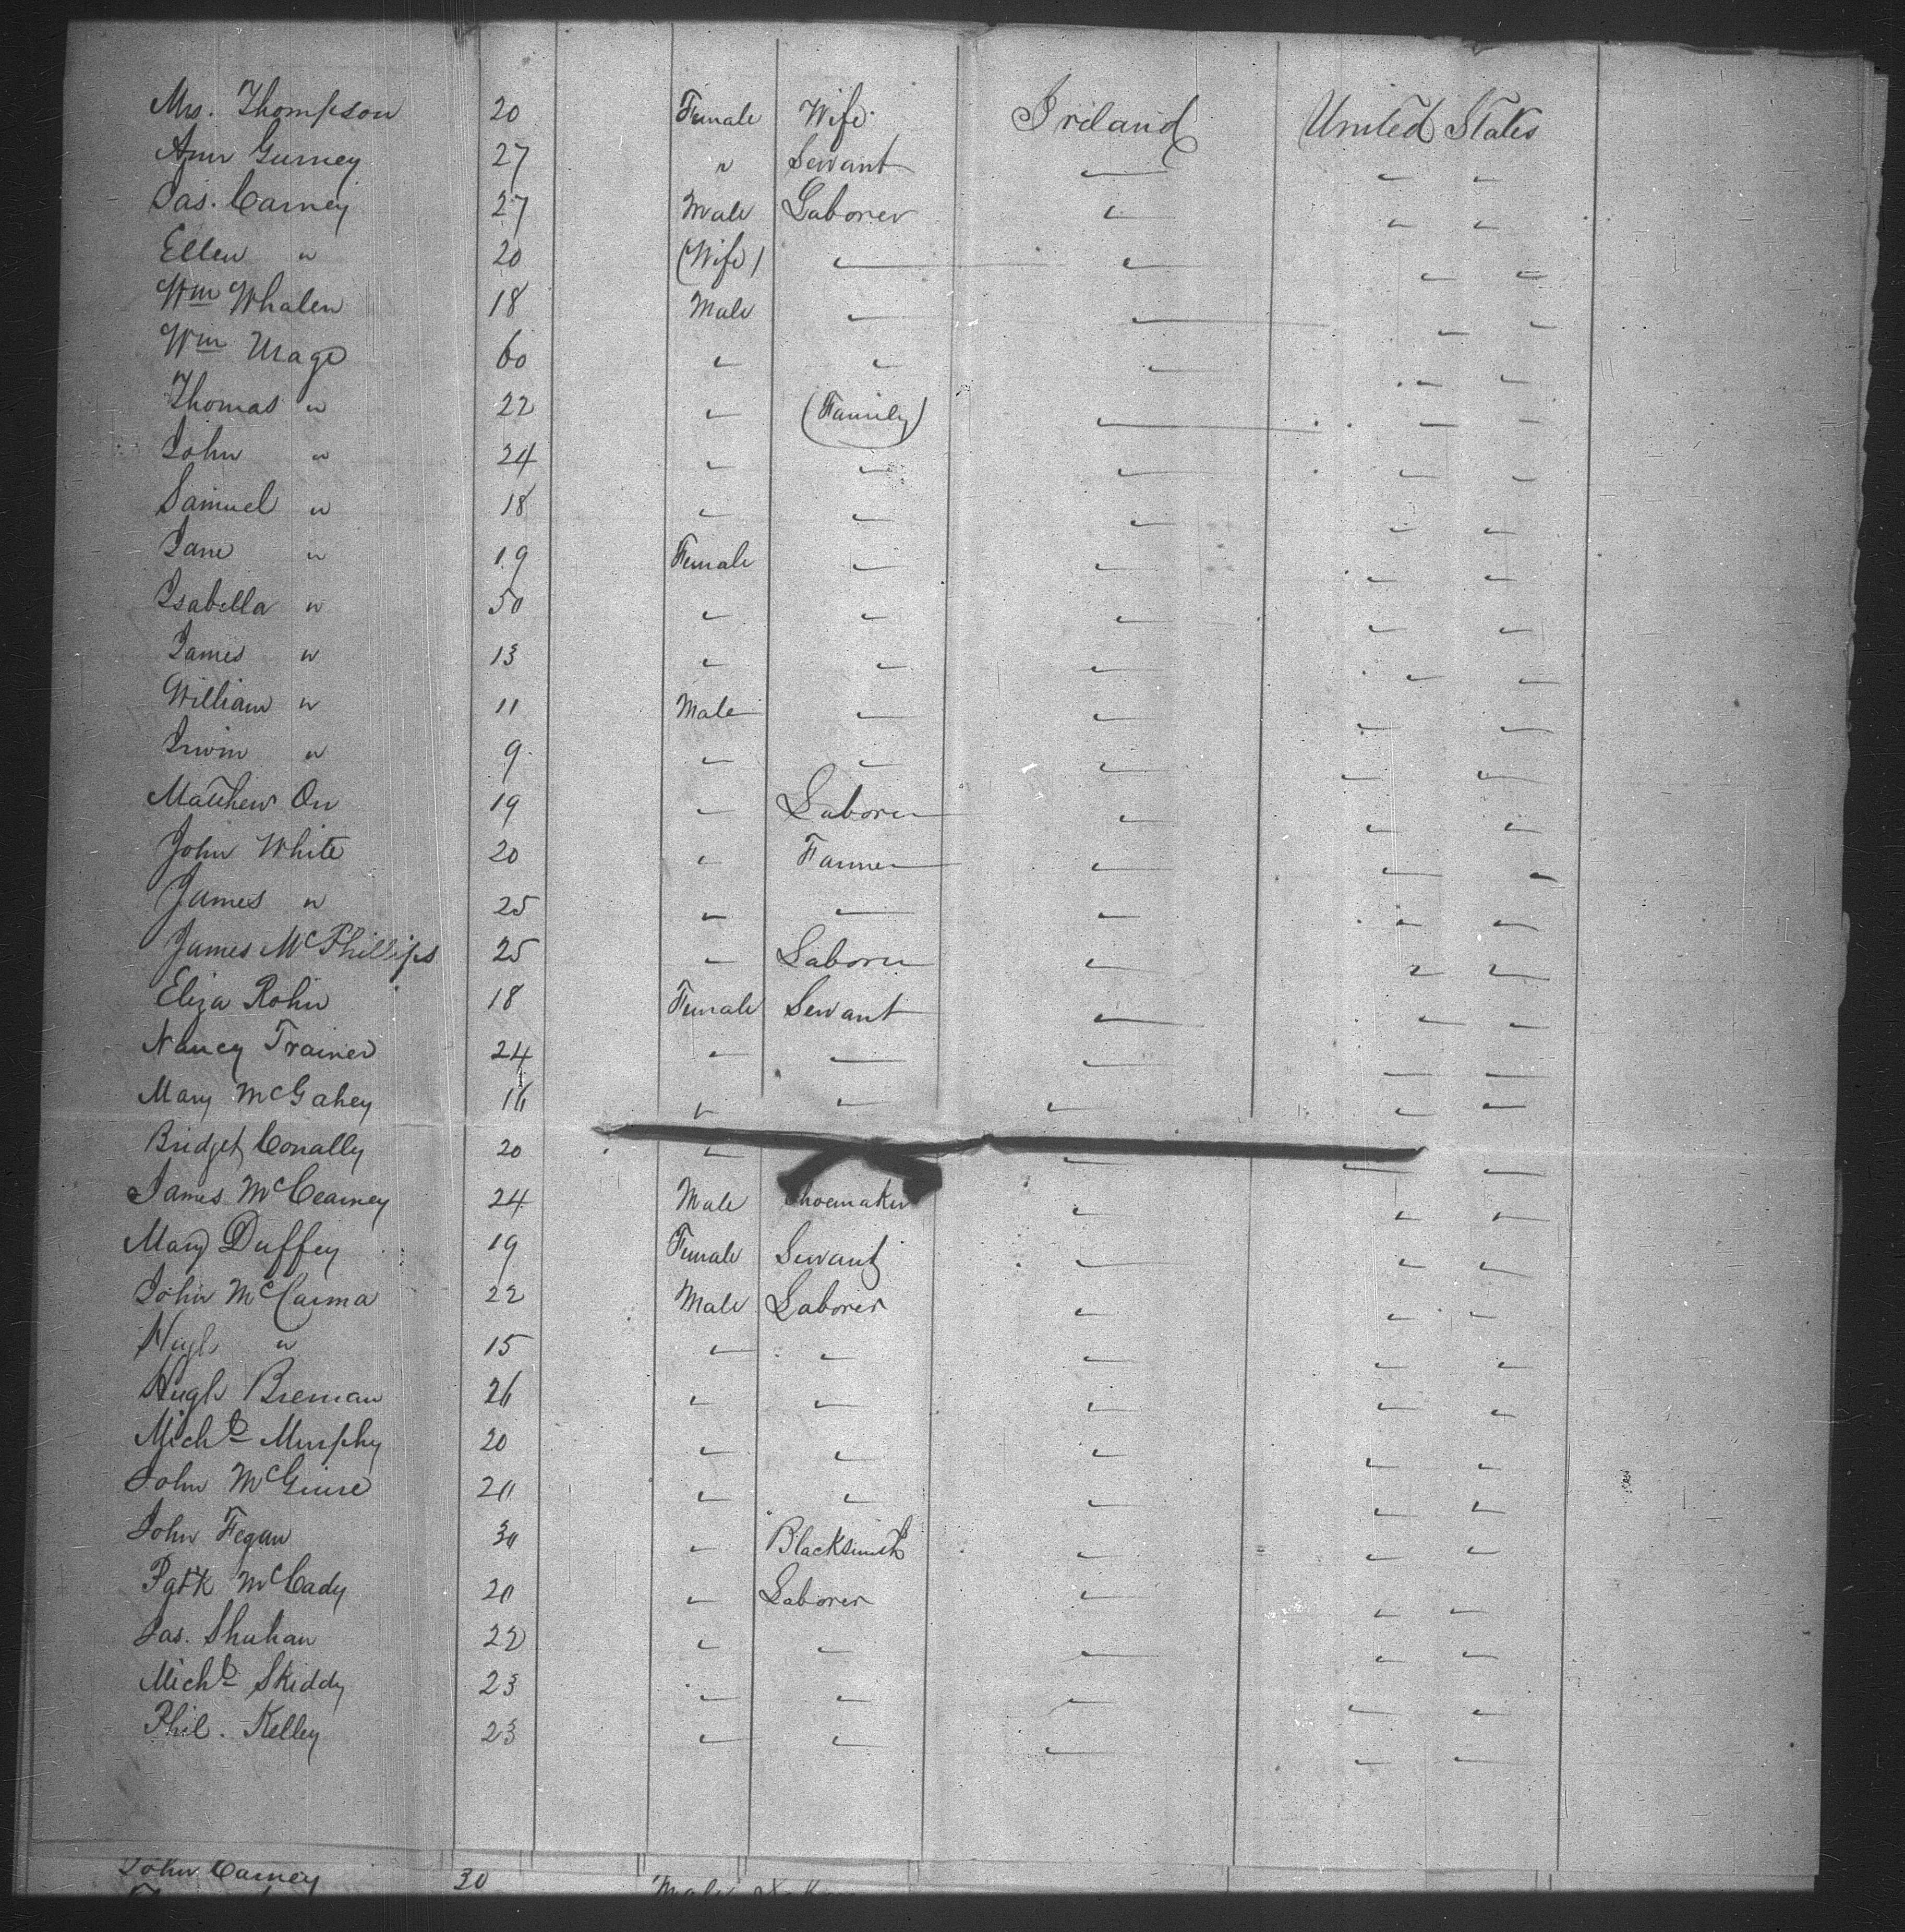 Mrs. Thompson 20 Female Wife Ireland United States
Ann Gurney 27 " Servant " " "
Jas. Carney 27 Male Laborer " " "
Ellen " 20 (Wife) " " " "
Wm Whalen 18 Male " " " "
Wm Urage 60 " " " " "
Thomas " 22 " (Family) " " "
John " 24 " " " " "
Samuel " 18 " " " " "
Jane " 19 Female " " " "
Isabella " 50 " " " " "
James " 13 " " " " "
William " 11 Male " " " "
Irwin " 9 " " " " "
Matthew Orr 19 " Laborer " " "
John White 20 " Farmer " " "
James " 25 " " " " "
James McPhillips 25 " Laborer " " "
Eliza Rohin 18 Female Servant " " "
Nancy Trainer 24 " " " " "
Mary McGahey 16 " " " " "
Bridget Conally 20 " " " "
James McCearney 24 Male Shoemaker " " "
Mary Duffey 19 Female Servant " " "
John McCarma 22 Male Laborer " " "
Hugh " 15 " " " " "
Hugh Brennan 26 " " " " "
Michl Murphy 20 " " " " "
John McGuire 20 " " " " "
John Fegan 30 " Blacksmith " " "
Patk McCady 20 " Laborer " " "
Jas. Shuhan 22 " " " " "
Michl Skiddy 23 " " " " "
Phil. Kelley 23 " " " " "
John Carney 30 Male